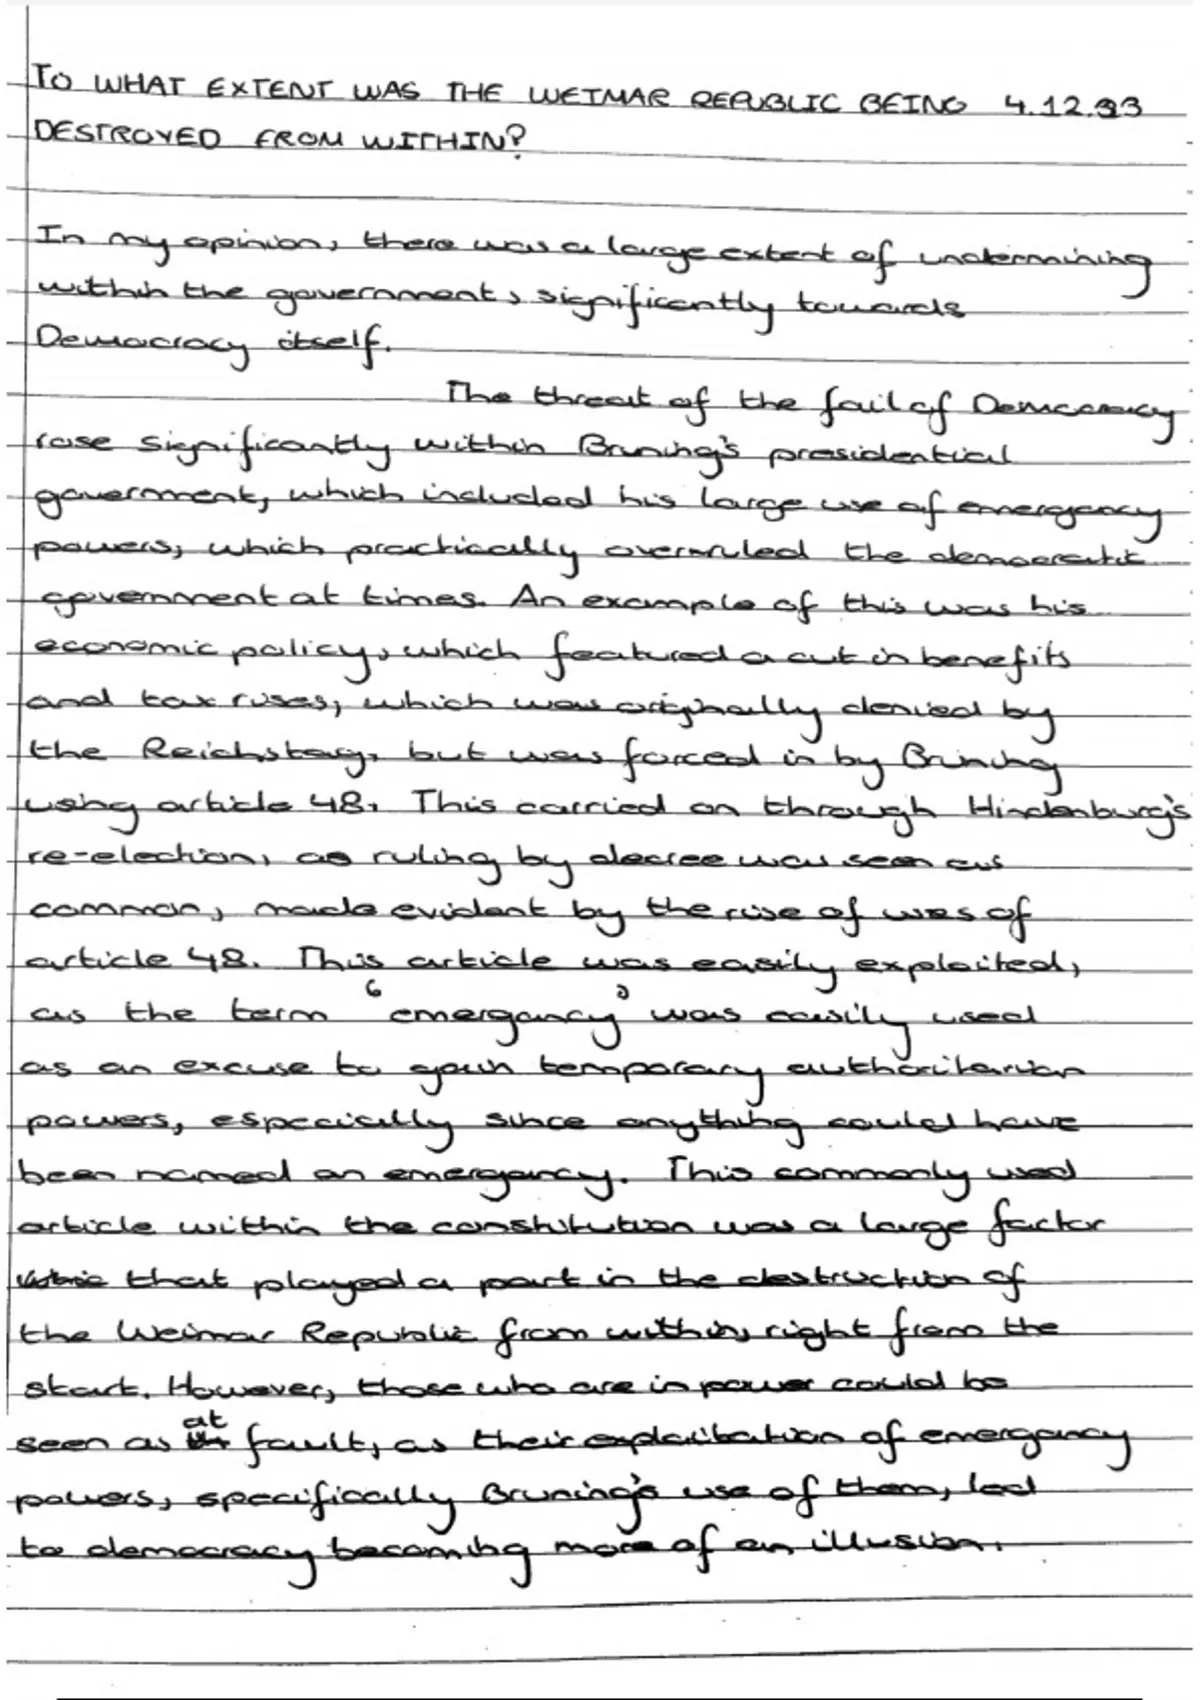 TO WHAT EXTENT WAS THE WEIMAR REPUBLIC BEING 4.12.23
DESTROYED FROM WITHIN?
In my opinion, there was a large extent of undermining
within the government, significantly towards
Democracy itself.
The threat of the fail of Democracy
rose significantly within Bruning's presidential
government, which included his large use of emergency
powers, which practically overruled the democratic
government at times. An example of this was his
economic policy, which featured a cut in benefits
and tax rises, which was originally denied by
the Reichstag, but was forced in by Bruning
using article 48. This carried on through Hindenburg's
re-election, as ruling by decree was seen as
common, made evident by the rise of uses of
article 48. This article was easily exploited,
as the term 'emergency' was easily used
as an excuse to gain temporary authoritarian
powers, especially since anything could have
been named an emergency. This commonly used
article within the constitution was a large factor
that played a part in the destruction of
the Weimar Republic from within, right from the
start. However, those who are in power could be
seen as at fault, as their exploitation of emergency
powers, specifically Bruning's use of them, led
to democracy becoming more of an illusion.